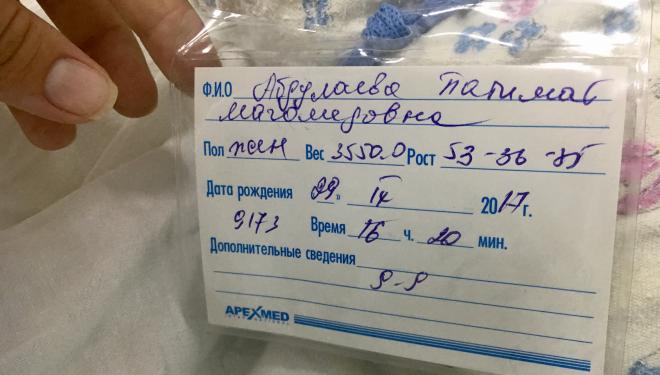 Ф.И.О Абдулаева Патимат
Магомедовна
Пол жен Вес 3550.0 Рост 53-36-35
Дата рождения 29. IX 2017г.
9173 Время 16 ч. 20 мин.
Дополнительные сведения
9-9
APEXMED
INTERNATIONAL